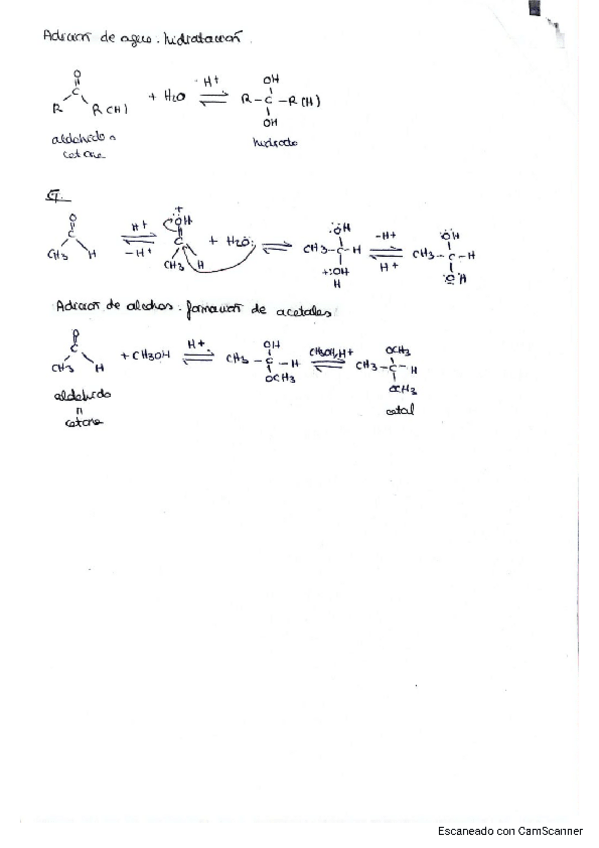 Adición de agua. hidratación.
O
C
R R(H) + H2O H+ ⇌ OH
R-C-R(H)
OH
aldehido o
cetona
hidrato
Ej
O
C
CH3 H H+ ⇌ -H+ +
:OH
C
CH3 H + H2Ö: ⇌ :ÖH
CH3-C-H
+:OH
H -H+ ⇌ H+ :ÖH
CH3-C-H
:ÖH
Adición de alcoholes. formación de acetales
O
C
CH3 H + CH3OH H+ ⇌ OH
CH3-C-H
OCH3 CH3OH, H+ ⇌ OCH3
CH3-C-H
OCH3
aldehido
n
cetona
cetal
Escaneado con CamScanner